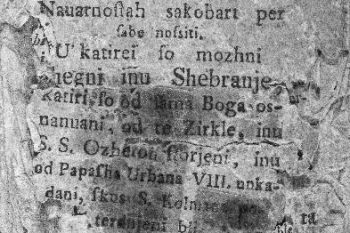 Nauarnoſtah sakobart per
ſabe noſsiti.
U' katirei ſo mozhni
Shegni inu Shebranje
katiri ſo od ſama Boga os-
nanuani, od te Zirkle, inu
S. S. Ozhetou ſtorjeni, inu
od Papaſha Urbana VIII. uoka-
dani, skus S.